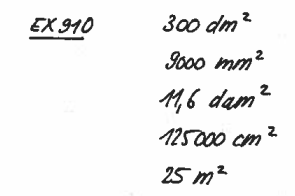 EX 910 300 dm²
9000 mm²
11,6 dam²
125000 cm²
25 m²